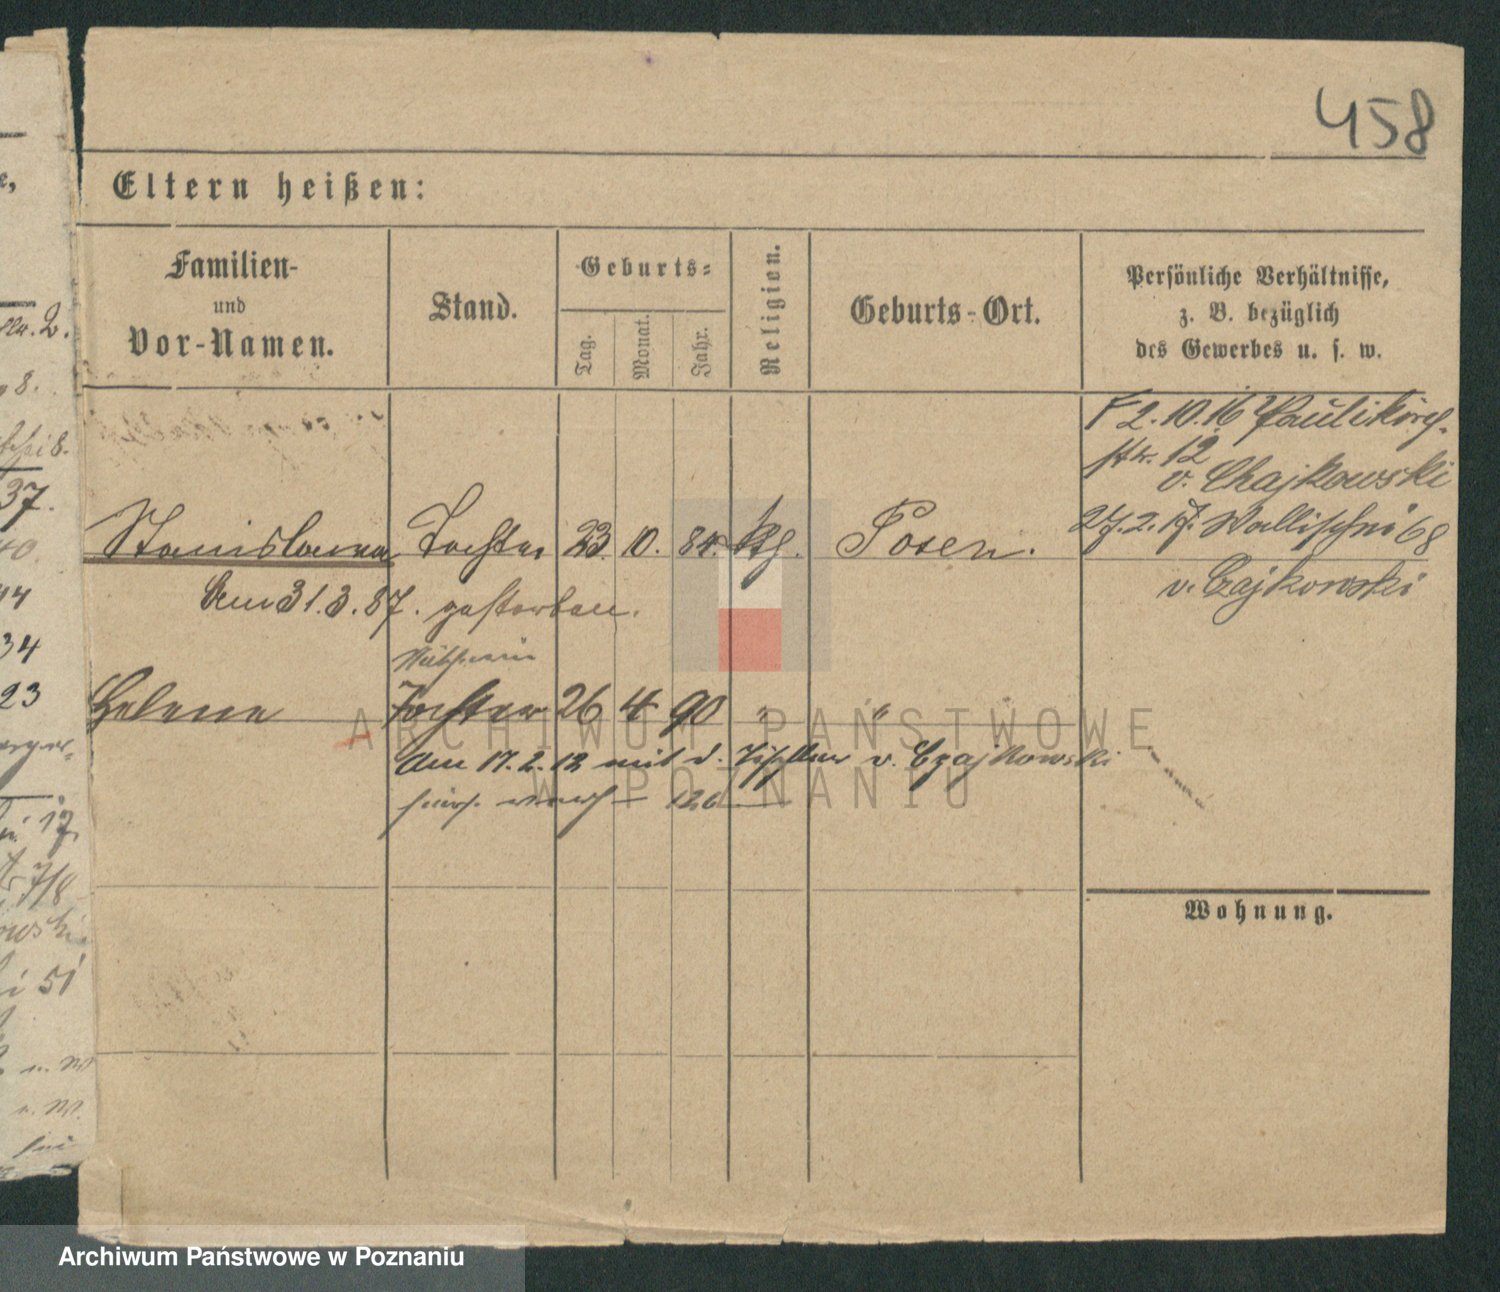 458
Eltern heißen:
Familien-
und
Vor-Namen.
Stand.
Geburts-
Tag.
Monat.
Jahr.
Religion.
Geburts-Ort.
Persönliche Verhältnisse,
z. B. bezüglich
des Gewerbes u. s. w.
2.10.16 Paulikirch-
str. 12
v. Czajkowski
27.2.17. Wallischei 68
v. Czajkowski
Stanislawa Tochter 23. 10. 84. kth. Posen.
Am 31.3.87. gestorben.
Helene Tochter 26 4 90 " "
Am 17.2.12 mit d. Tischler v. Czajkowski
126
Wohnung.
37.
44
34
23
17
7/8
51
ARCHIWUM PAŃSTWOWE
W POZNANIU
Archiwum Państwowe w Poznaniu